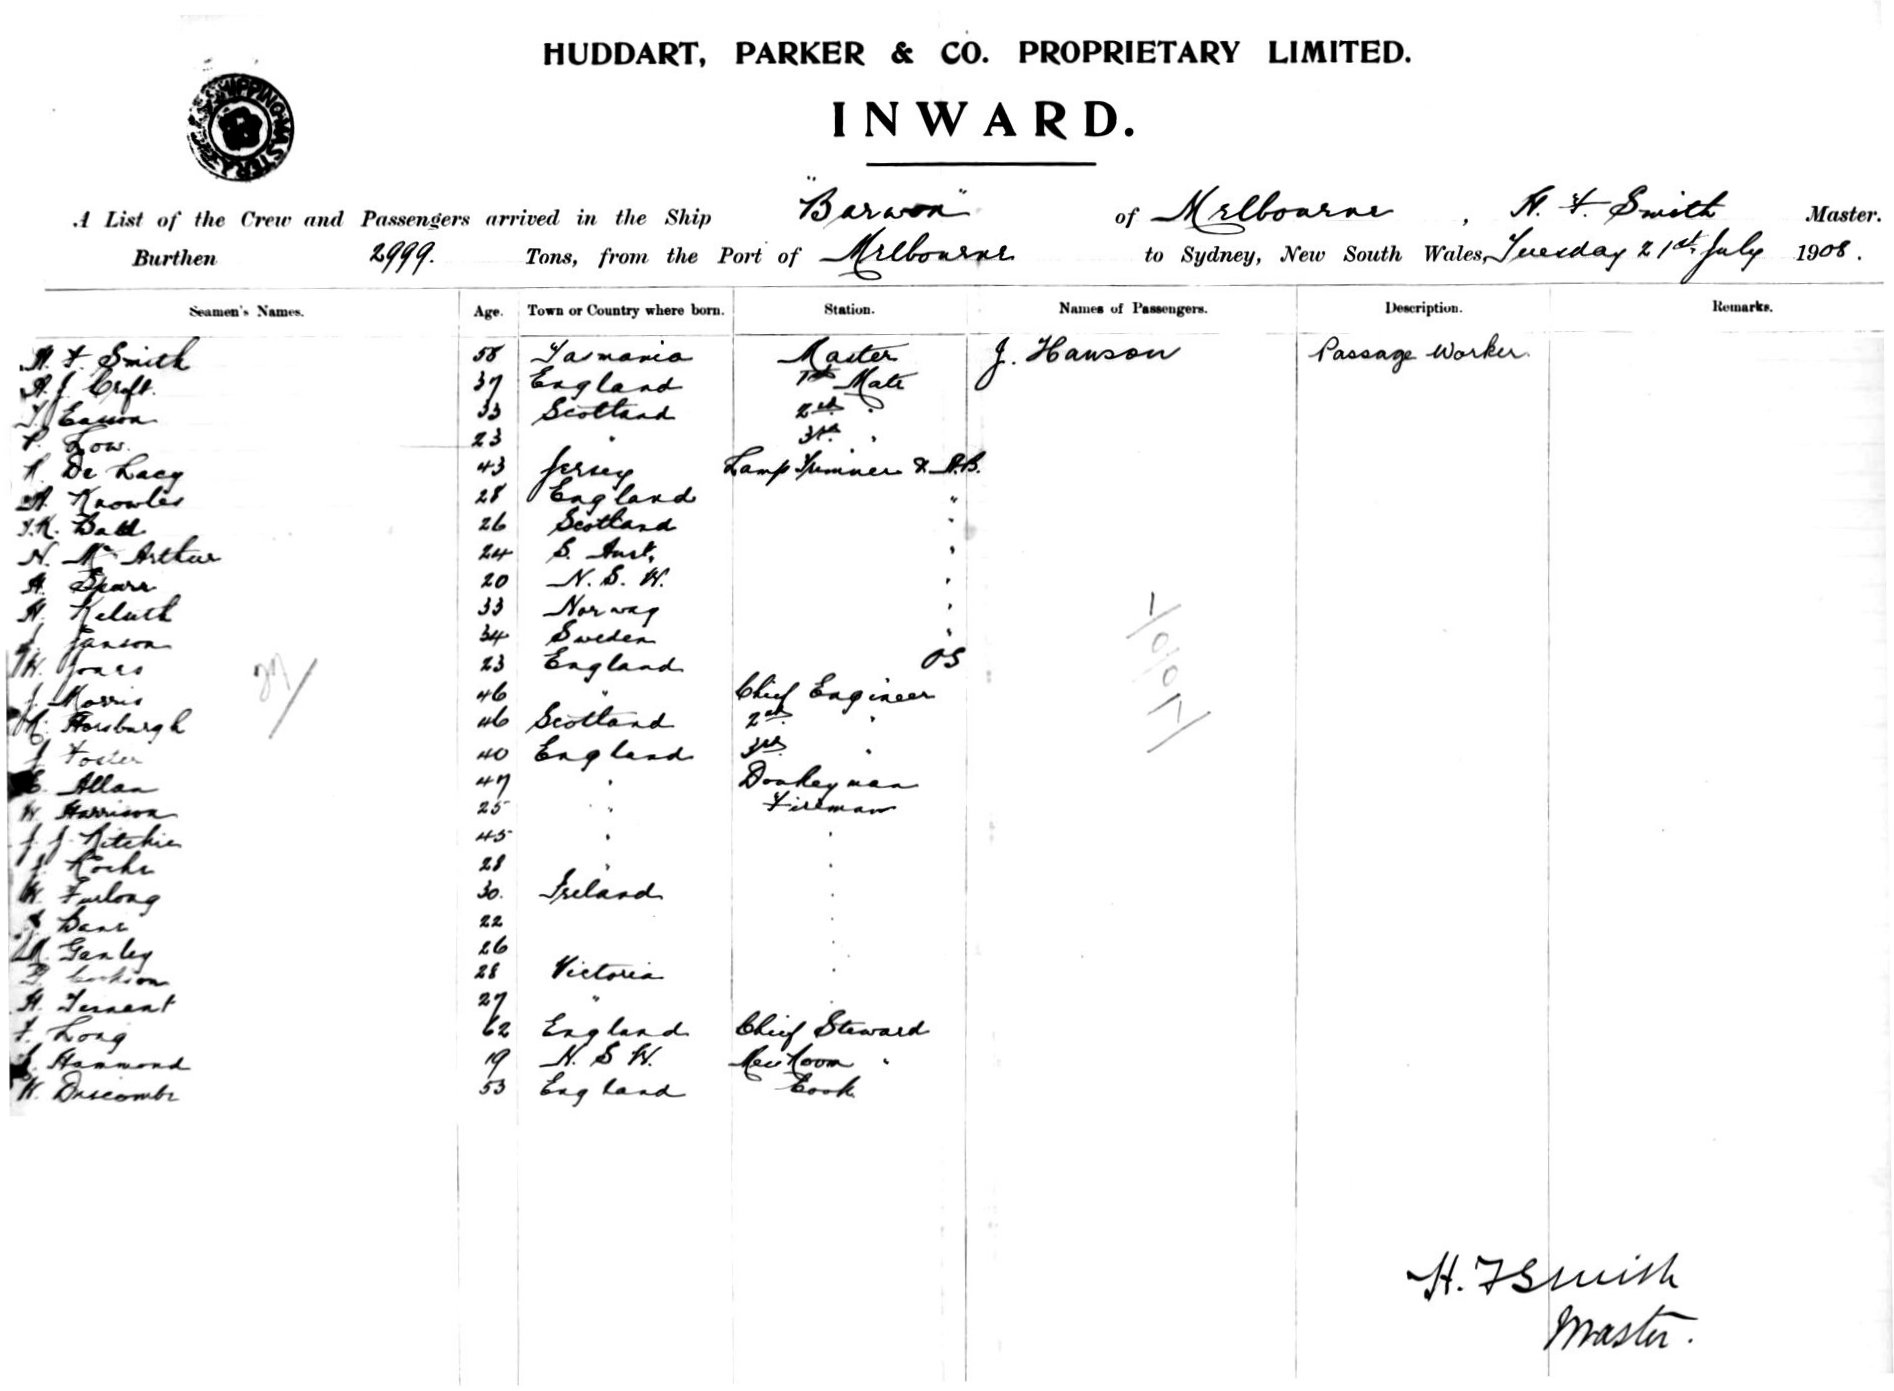 HUDDART, PARKER & CO. PROPRIETARY LIMITED.
INWARD.
SHIPPING MASTER
A List of the Crew and Passengers arrived in the Ship "Barwon" of Melbourne, H. F. Smith Master.
Burthen 2999. Tons, from the Port of Melbourne to Sydney, New South Wales, Tuesday 21st July 1908.
Seamen's Names. Age. Town or Country where born. Station. Names of Passengers. Description. Remarks.
H. F. Smith 58 Tasmania Master J. Hanson Passage Worker
A. J. Croft. 37 England 1st Mate
T. Easson 33 Scotland 2nd "
P. Low. 23 " 3rd "
R. De Lacy 43 Jersey Lamp Trimmer & A.B.
A. Knowles 28 England "
26 Scotland "
N. Mc Arthur 24 S. Aust. "
A. Sparr 20 N. S. W. "
H. 33 Norway "
J. Janson 34 Sweden "
W. Jones 23 England OS
J. Morris 46 " Chief Engineer
R. Horsburgh 46 Scotland 2nd "
J. Foster 40 England 3rd "
E. Allan 47 " Donkeyman
W. Harrison 25 " Fireman
J. J. Ritchie 45 " "
J. Roche 28 " "
W. Furlong 30. Ireland "
J. Dane 22 "
M. Ganley 26 "
Cookson 28 Victoria "
H. Tennent 27 " "
F. Long 62 England Chief Steward
J. Hammond 19 N. S. W. Mess Room "
W. Discombe 53 England Cook.
27/
H. F Smith
Master.